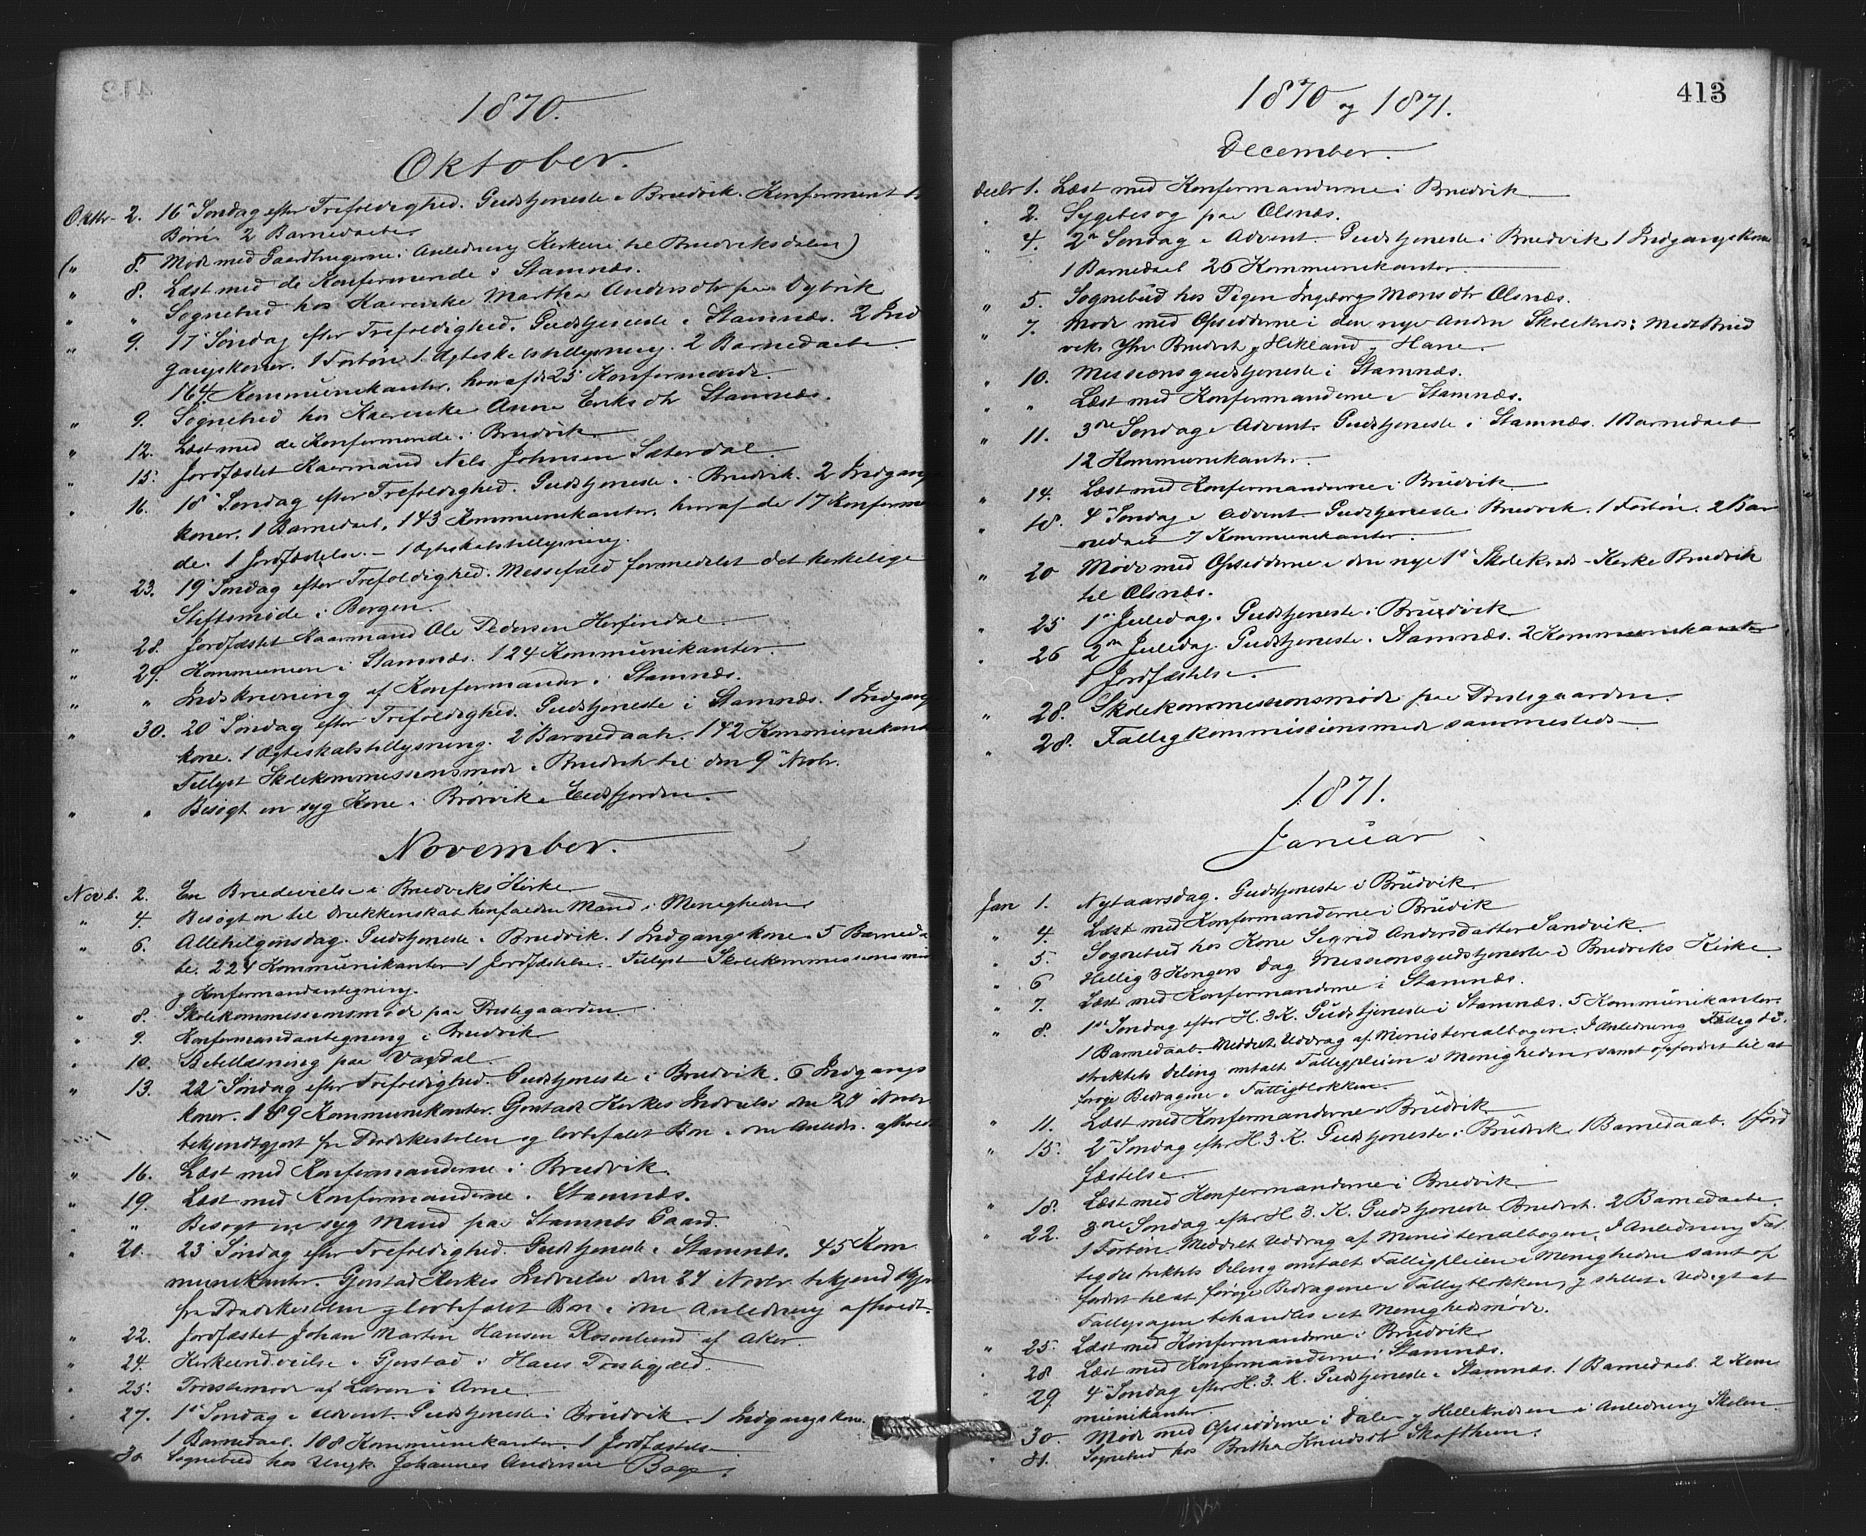 1870.
Oktober.
Oktbr. 2. 16de Søndag efter Trefoldighed. Gudstjeneste i Bruvik. Konfirmeret 15
Børn. 2 Barnedaab.
(" 5. Møde med Gaardbrugerne i Anledning Kirkevei til Bruviksdalen)
" 8. Læst med de Konfirmerede i Stamnæs.
" " Sognebud hos Kaarenke Martha Andersdtr paa
" 9. 17de Søndag efter Trefoldighed. Gudstjeneste i Stamnæs. 2 Ind
gangskoner. 1 Forbøn. 1 Ægteskabstillysning. 2 Barnedaab.
164 Kommunikanter, heraf de 25 Konfirmerede.
" 9. Sognebud hos Kaarenke Anna Eriksdtr Stamnæs.
" 12. Læst med de Konfirmerede i Bruvik.
" 15. Jordfæstet Kaarmand Nels Johnsen Sæterdal.
" 16. 18de Søndag efter Trefoldighed. Gudstjeneste i Bruvik. 2 Indgangs
koner. 1 Barnedaab. 143 Kommunikanter, heraf de 17 Konfirmere
de. 1 Jordfæstelse. – 1 Ægteskabstillysning.
" 23. 19de Søndag efter Trefoldighed. Messefald formedelst det kirkelige
Stiftsmøde i Bergen.
" 28. Jordfæstet Kaarmand Ole Pedersen Herfindal.
" 29. Kommunion i Stamnæs. 124 Kommunikanter.
" " Indskrivning af Konfirmander i Stamnæs.
" 30. 20de Søndag efter Trefoldighed. Gudstjeneste i Stamnæs. 1 Indgangs
kone. 1 Ægteskabstillysning. 2 Barnedaab. 142 Kommunikant
Tillyst Skolekommissionsmøde i Bruvik til den 9de Novbr.
" " Besøgt en syg Kone i Brørvik i Eidsfjorden.
November.
Novb. 2. En Brudevielse i Bruviks Kirke.
" 4. Besøgt en til Drukkenskab henfalden Mand i Menigheden
" 6. Allehelgensdag. Gudstjeneste i Bruvik. 1 Indgangskone. 5 Barneda
be. 224 Kommunikanter 1 Jordfæstelse. Tillyst Skolekommissionsmøde
og Konfirmandantegning.
" 8. Skolekommissionsmøde paa Præstegaarden
" 9. Konfirmandantegning i Bruvik
" 10. Bibellæsning paa Vaxdal.
" 13. 22de Søndag efter Trefoldighed. Gudstjeneste i Bruvik. 6 Indgangs
koner. 189 Kommunikanter. Gjerstad Kirkes Indvielse den 24 Novbr
bekjendtgjort fra Prædikestolen og lovbefalet Bøn i den Anledn. afholdt
" 16. Læst med Konfirmanderne i Bruvik.
" 19. Læst med Konfirmanderne i Stamnæs.
" " Besøgt en syg Mand paa Stamnes Gaard.
" 20. 23de Søndag efter Trefoldighed. Gudstjeneste i Stamnæs. 45 Kom
munikanter. Gjerstad Kirkes Indvielse den 24 Novbr bekjendtgjort
fra Prædikestolen og lovbefalet Bøn i den Anledning afholdt.
" 22. Jordfæstet Johan Martin Hansen Rosenlund af Aker.
" 24. Kirkeindvielse i Gjerstad i Haus Præstegjeld.
" 25. Præstemøde af Læren i Arne.
" 27. 1ste Søndag i Advent. Gudstjeneste i Bruvik. 1 Indgangskone.
1 Barnedaab. 108 Kommunikanter. 1 Jordfæstelse
30 Sognebud hos Ungk. Johannes Andersen Boge.
1870 og 1871.
413
December.
Decbr 1. Læst med Konfirmanderne i Bruvik
" 2. Sygebesøg paa Olsnæs.
" 4. 2den Søndag i Advent. Gudstjeneste i Bruvik 1 Indgangskone
1 Barnedaab 26 Kommunikanter.
" 5. Sognebud hos Pigen Ingeborg Monsdtr Olsnæs.
" 7. Møde med Opsidderne i den nye Anden Skolekreds: Midt Bruvik
vik, Ytre Bruvik og Hekland og Hane.
" 10. Missionsgudstjeneste i Stamnæs.
" " Læst med Konfirmanderne i Stamnæs.
" 11. 3die Søndag i Advent. Gudstjeneste i Stamnæs. 1 Barnedaab
12 Kommunikanter.
" 14. Læst med Konfirmanderne i Bruvik
" 18. 4de Søndag i Advent. Gudstjeneste i Bruvik. 1 Forbøn. 2 Bar
nedaab 7 Kommunikanter.
" 20 Møde med Opsidderne i den nye 1ste Skolekreds – Kirke Bruvik
til Olsnæs.
" 25 1ste Juledag. Gudstjeneste i Bruvik
" 26 2den Juledag. Gudstjeneste i Stamnæs. 2 Kommunikanter
1 Jordfæstelse.
" 28. Skolekommissionsmøde paa Præstegaarden.
" 28. Fattigkommissionsmøde sammesteds
1871.
Januar
Jan 1. Nytaarsdag. Gudstjeneste i Bruvik.
" 4. Læst med Konfirmanderne i Bruvik
" 5. Sognebud hos Kone Sigrid Andersdatter Sandvik.
" 6 Hellig 3 Kongers Dag Missionsgudstjeneste i Bruviks Kirke.
" 7. Læst med Konfirmanderne i Stamnæs.
" 8. 1ste Søndag efter H. 3 K. Gudstjeneste i Stamnæs. 5 Kommunikanter.
1 Barnedaab. Meddelt Uddrag af Ministerialbogen. I Anledning Fattigdi
striktets Deling omtalt Fattigpleien i Menigheden samt opfordret til at
forøge Bidragene i Fattigblokken.
" 11. Læst med Konfirmanderne i Bruvik
" 15. 2den Søndag efter H. 3 K. Gudstjeneste i Bruvik 1 Barnedaab. 1 Jord
fæstelse.
" 18. Læst med Konfirmanderne i Bruvik.
" 22. 3die Søndag efter H. 3. K. Gudstjeneste Bruvik. 2 Barnedaab.
1 Forbøn Meddelt Uddrag af Ministerialbogen. I Anledning Fat
tigdistriktets Deling omtalt Fattigpleien i Menigheden samt op
fordret til at forøge Bidragene i Fattigblokken, og stillet i Udsigt at
Fattigsagen behandles i et Menighedsmøde.
" 25. Læst med Konfirmanderne i Bruvik
" 28 Læst med Konfirmanderne i Stamnæs.
" 29 4de Søndag efter H. 3. K. Gudstjeneste i Stamnæs. 1 Barnedaab. 2 Kom
munikanter.
" 30. Møde med Opsidderne i Dale og Hellekredsen i Anledning Skolen.
" 31. Sognebud hos Britha Knudsdt Skoftheim.